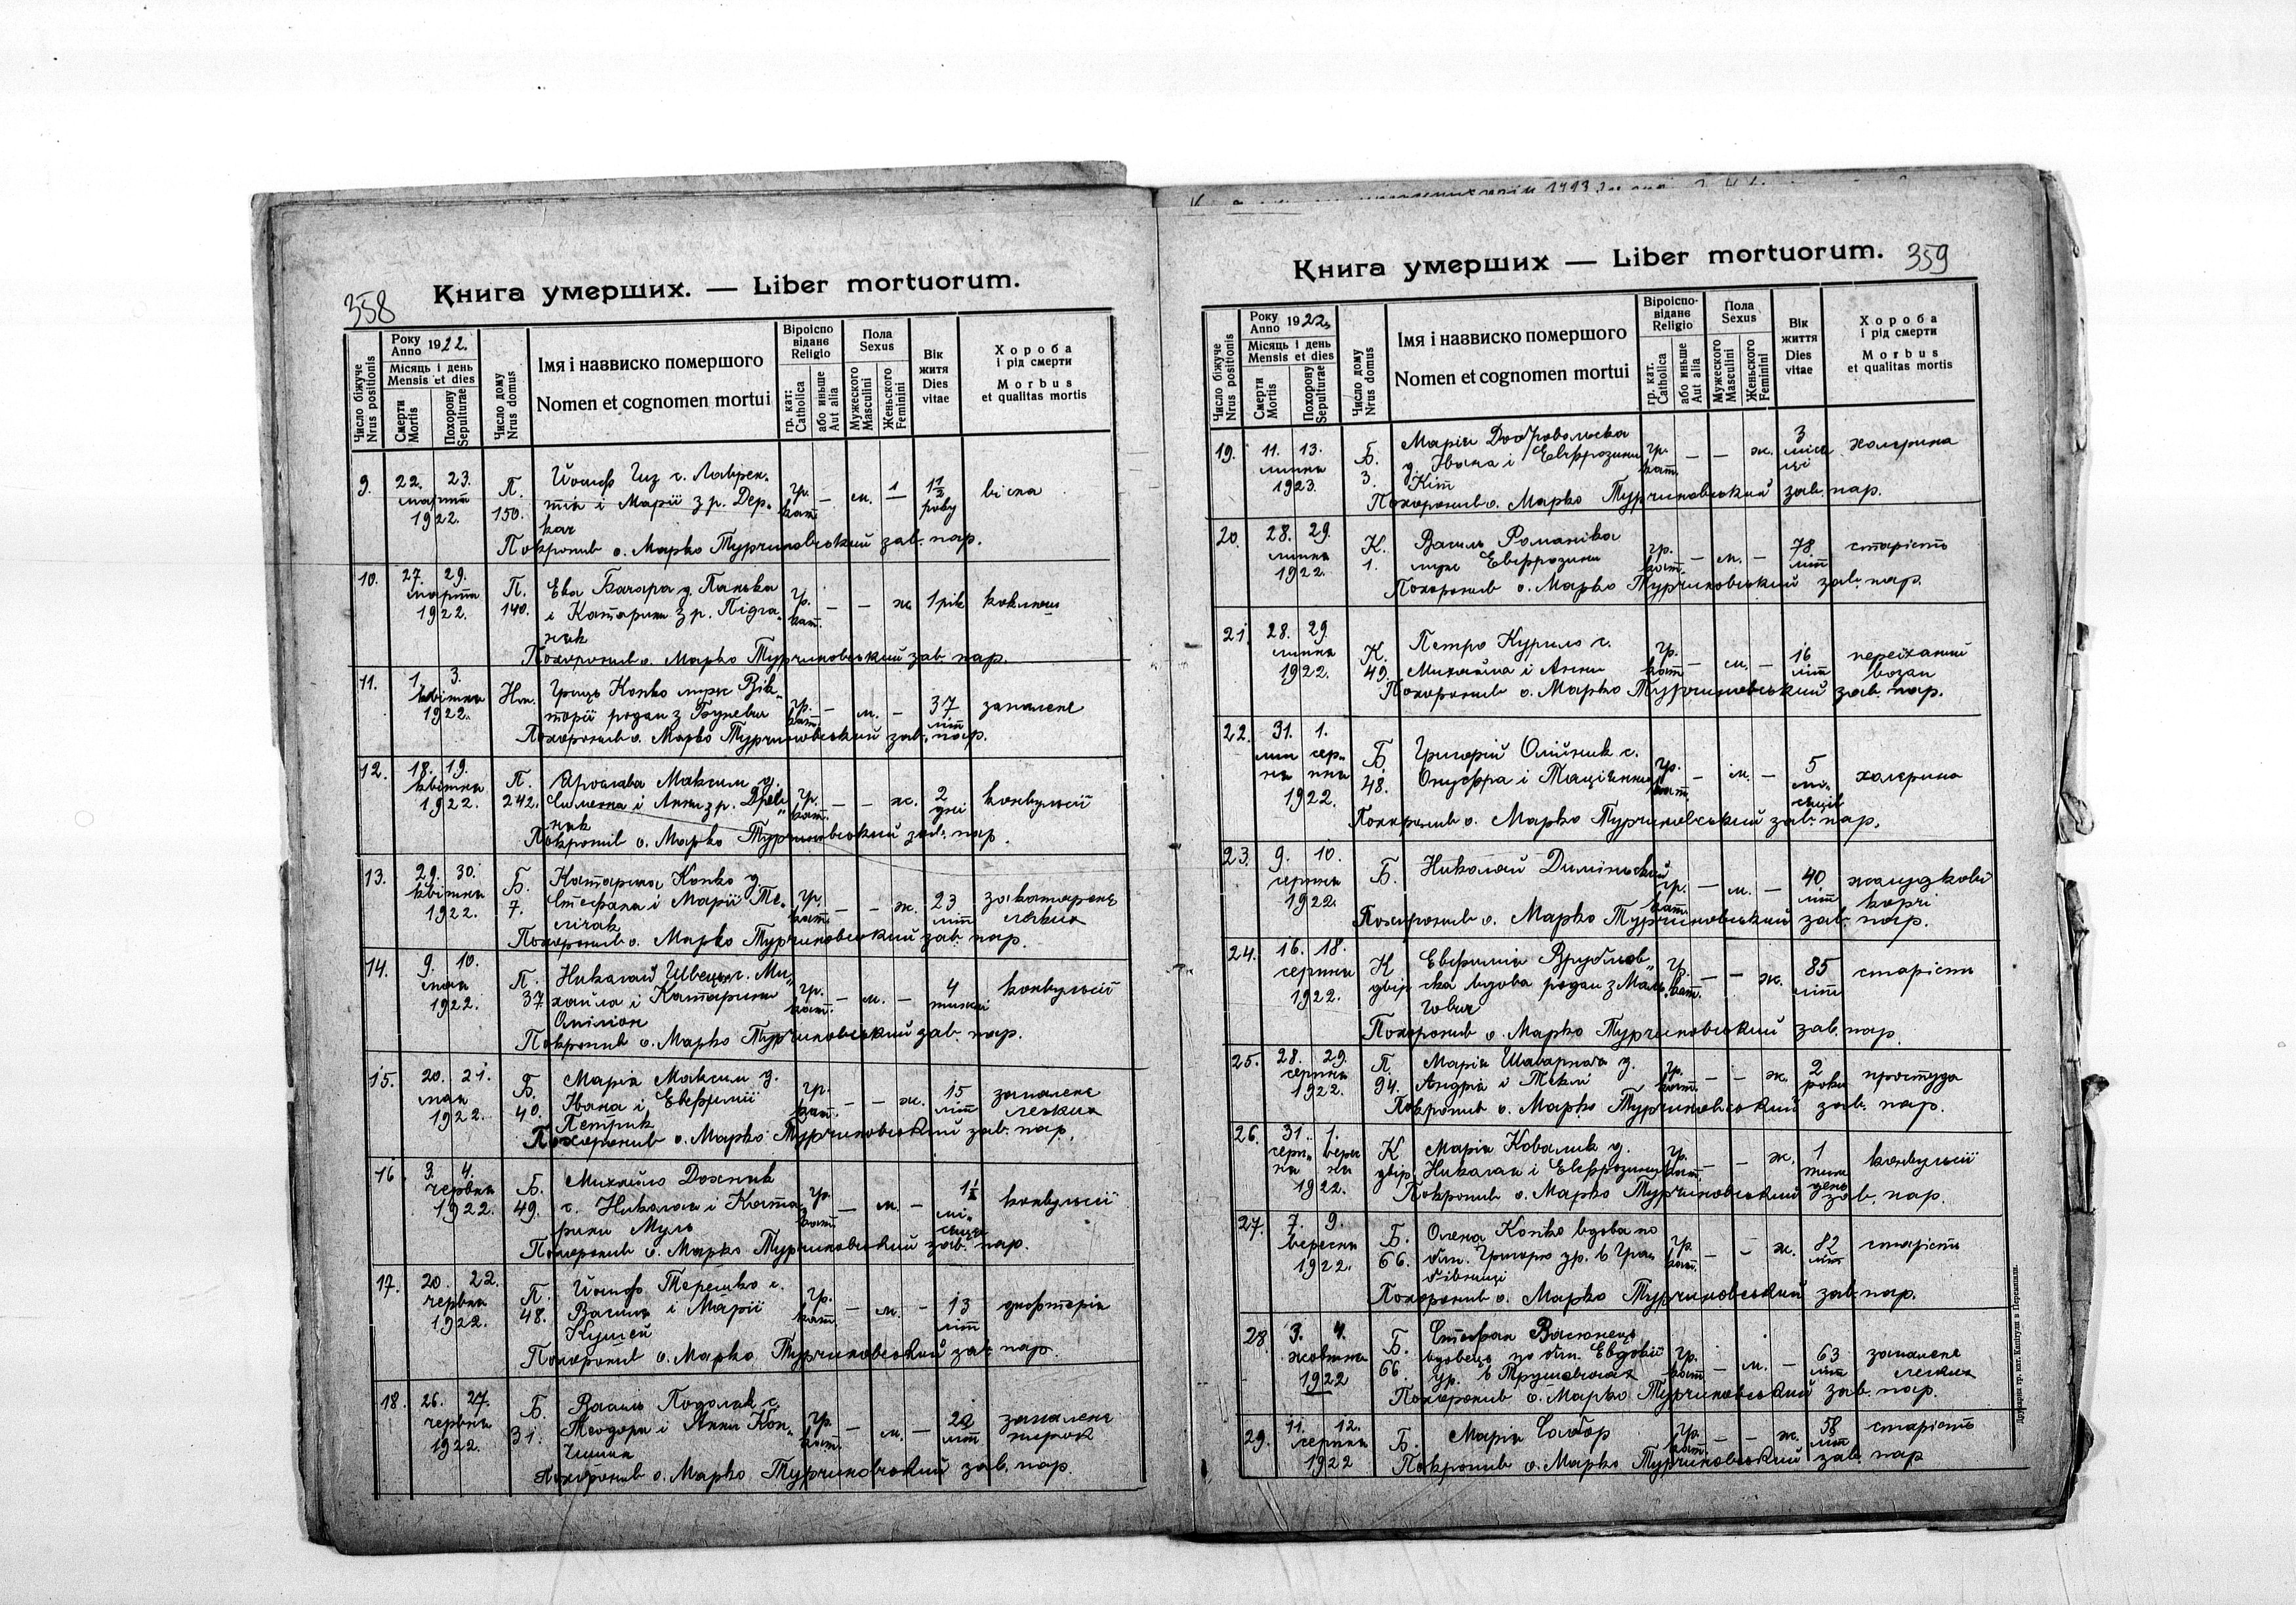 358
Книга умерших. — Liber mortuorum.
Число біжуче
Nrus positionis
Року
Anno 1922.
Місяць і день
Mensis et dies
Смерти
Mortis
Похорону
Sepulturae
Число дому
Nrus domus
Імя і наввиско помершого
Nomen et cognomen mortui
Віроіспо
відане
Religio
гр. кат.
Catholica
або иньше
Aut alia
Пола
Sexus
Мужеского
Masculini
Женьского
Feminini
Вік
житя
Dies
vitae
Хороба
і рід смерти
Morbus
et qualitas mortis
9. 22. 23. П. Йосиф Чиз с. Лаврен-
марта 150. тія і Марії з р. Дер- гр. кат. — м. 1 1½ року віспа
1922. кач
Похоронив о. Марко Турчиновський зав. пар.
10. 27. 29. П. Ева Бачара д. Панька
марта 140. і Катарини з р. Підга- гр. кат. — — ж 1 рік коклюш
1922. няк
Похоронив о. Марко Турчиновський зав. пар.
11. 1. 3. Нов. Гриць Копко муж Вік-
квітня торії родом з гр. кат. — м. — 37 літ запалене
1922.
Похоронив о. Марко Турчиновський зав. пар.
12. 18. 19. П. Ярослава Максим д.
квітня 242. Симеона і Анни з р. гр. кат. — — ж. 2 дні конвульсії
1922.
Похоронив о. Марко Турчиновський зав. пар.
13. 29. 30. Б. Катарина Копко д.
квітня 7. Стефана і Марії Те- гр. кат. — — ж. 23 літ закатарене
1922. лічак легких
Похоронив о. Марко Турчиновський зав. пар.
14. 9. 10. П. Николай Швець с. Ми-
мая 37 хайла і Катарини гр. кат. — м. — 4 тижні конвульсії
1922.
Похоронив о. Марко Турчиновський зав. пар.
15. 20. 21. Б. Марія Максим д.
мая 40. Івана і Евфимії гр. кат. — — ж. 15 літ запалене
1922. Петрик легких
Похоронив о. Марко Турчиновський зав. пар.
16 3. 4. Б. Михайло Дохник
червня 49. с. Николая і Ката- гр. кат. — м. — 1½ мі- конвульсії
1922. рини Муль сяця
Похоронив о. Марко Турчиновський зав. пар.
17. 20. 22. П. Йосиф Терешко с.
червня 48. Василя і Марії гр. кат. — м. — 13 літ дифтерія
1922.
Похоронив о. Марко Турчиновський зав. пар.
18. 26. 27. Б. Василь Подоляк с.
червня 31. Теодора і Анни гр. кат. — м. — літ запалене
1922. нирок
Похоронив о. Марко Турчиновський зав. пар.
359
Книга умерших — Liber mortuorum.
Число біжуче
Nrus positionis
Року
Anno 1922.
Місяць і день
Mensis et dies
Смерти
Mortis
Похорону
Sepulturae
Число дому
Nrus domus
Імя і наввиско помершого
Nomen et cognomen mortui
Віроіспо-
відане
Religio
гр. кат.
Catholica
або иньше
Aut alia
Пола
Sexus
Мужеского
Masculini
Женьского
Feminini
Вік
життя
Dies
vitae
Хороба
і рід смерти
Morbus
et qualitas mortis
19. 11. 13. Б. Марія Добровольска
липня 3. д. Івана і Евфрозини гр. кат. — — ж. 3 міся ці холерина
1923. Кіт
Похоронив о. Марко Турчиновський зав. пар.
20. 28. 29. К. Василь Романіка
липня 1. муж Евфрозини гр. кат. — м. — 78 літ старість
1922.
Похоронив о. Марко Турчиновський зав. пар.
21. 28. 29. К. Петро Курило с.
липня 49. Михайла і Анни гр. кат — м. — 16 літ переїханий
1922. возом
Похоронив о. Марко Турчиновський зав. пар.
22. 31. 1. Б. Григорій Олійник с.
лип сер- 48. Онуфра і гр. кат. — м. — 5 мі- холерина
ня пня сяців
1922.
Похоронив о. Марко Турчиновський зав. пар.
23. 9. 10. Б. Николай
серпня гр. кат. — м. — 40 літ жолудкові
1922. корчі
Похоронив о. Марко Турчиновський зав. пар.
24. 16. 18. К Евфимія Врублев-
серпня двір ска вдова родом з гр. кат. — — ж. 85 літ старість
1922.
Похоронив о. Марко Турчиновський зав. пар.
25. 28. 29. П. Марія д.
серпня 94. Андрія і Теклі гр. кат. — — ж. 2 роки простуда
1922.
Похоронив о. Марко Турчиновський зав. пар.
26. 31. 1. К Марія Ковалик д.
серп- верес двір Николая і Евфрозини гр. кат. — — ж. 1 тиж день конвульсії
ня ня
1922.
Похоронив о. Марко Турчиновський зав. пар.
27. 7. 9. Б. Олена Копко вдова по
вересня 66. бл. Григорю зр. в гр. кат. — — ж. 82 літ старість
1922.
Похоронив о. Марко Турчиновський зав. пар.
28 3. 4. Б. Стефан Васюнець
жовтня 66 вдовець по бл. Евдокії гр. кат. — м. — 63 літ запалене
1922 ур. в легких
Похоронив о. Марко Турчиновський зав. пар.
29. 11. 12. Б. Марія гр. кат. — — ж. 58 літ старість
серпня
1922
Похоронив о. Марко Турчиновський зав. пар
Друкарня гр. кат. Капітули в Перемишли.